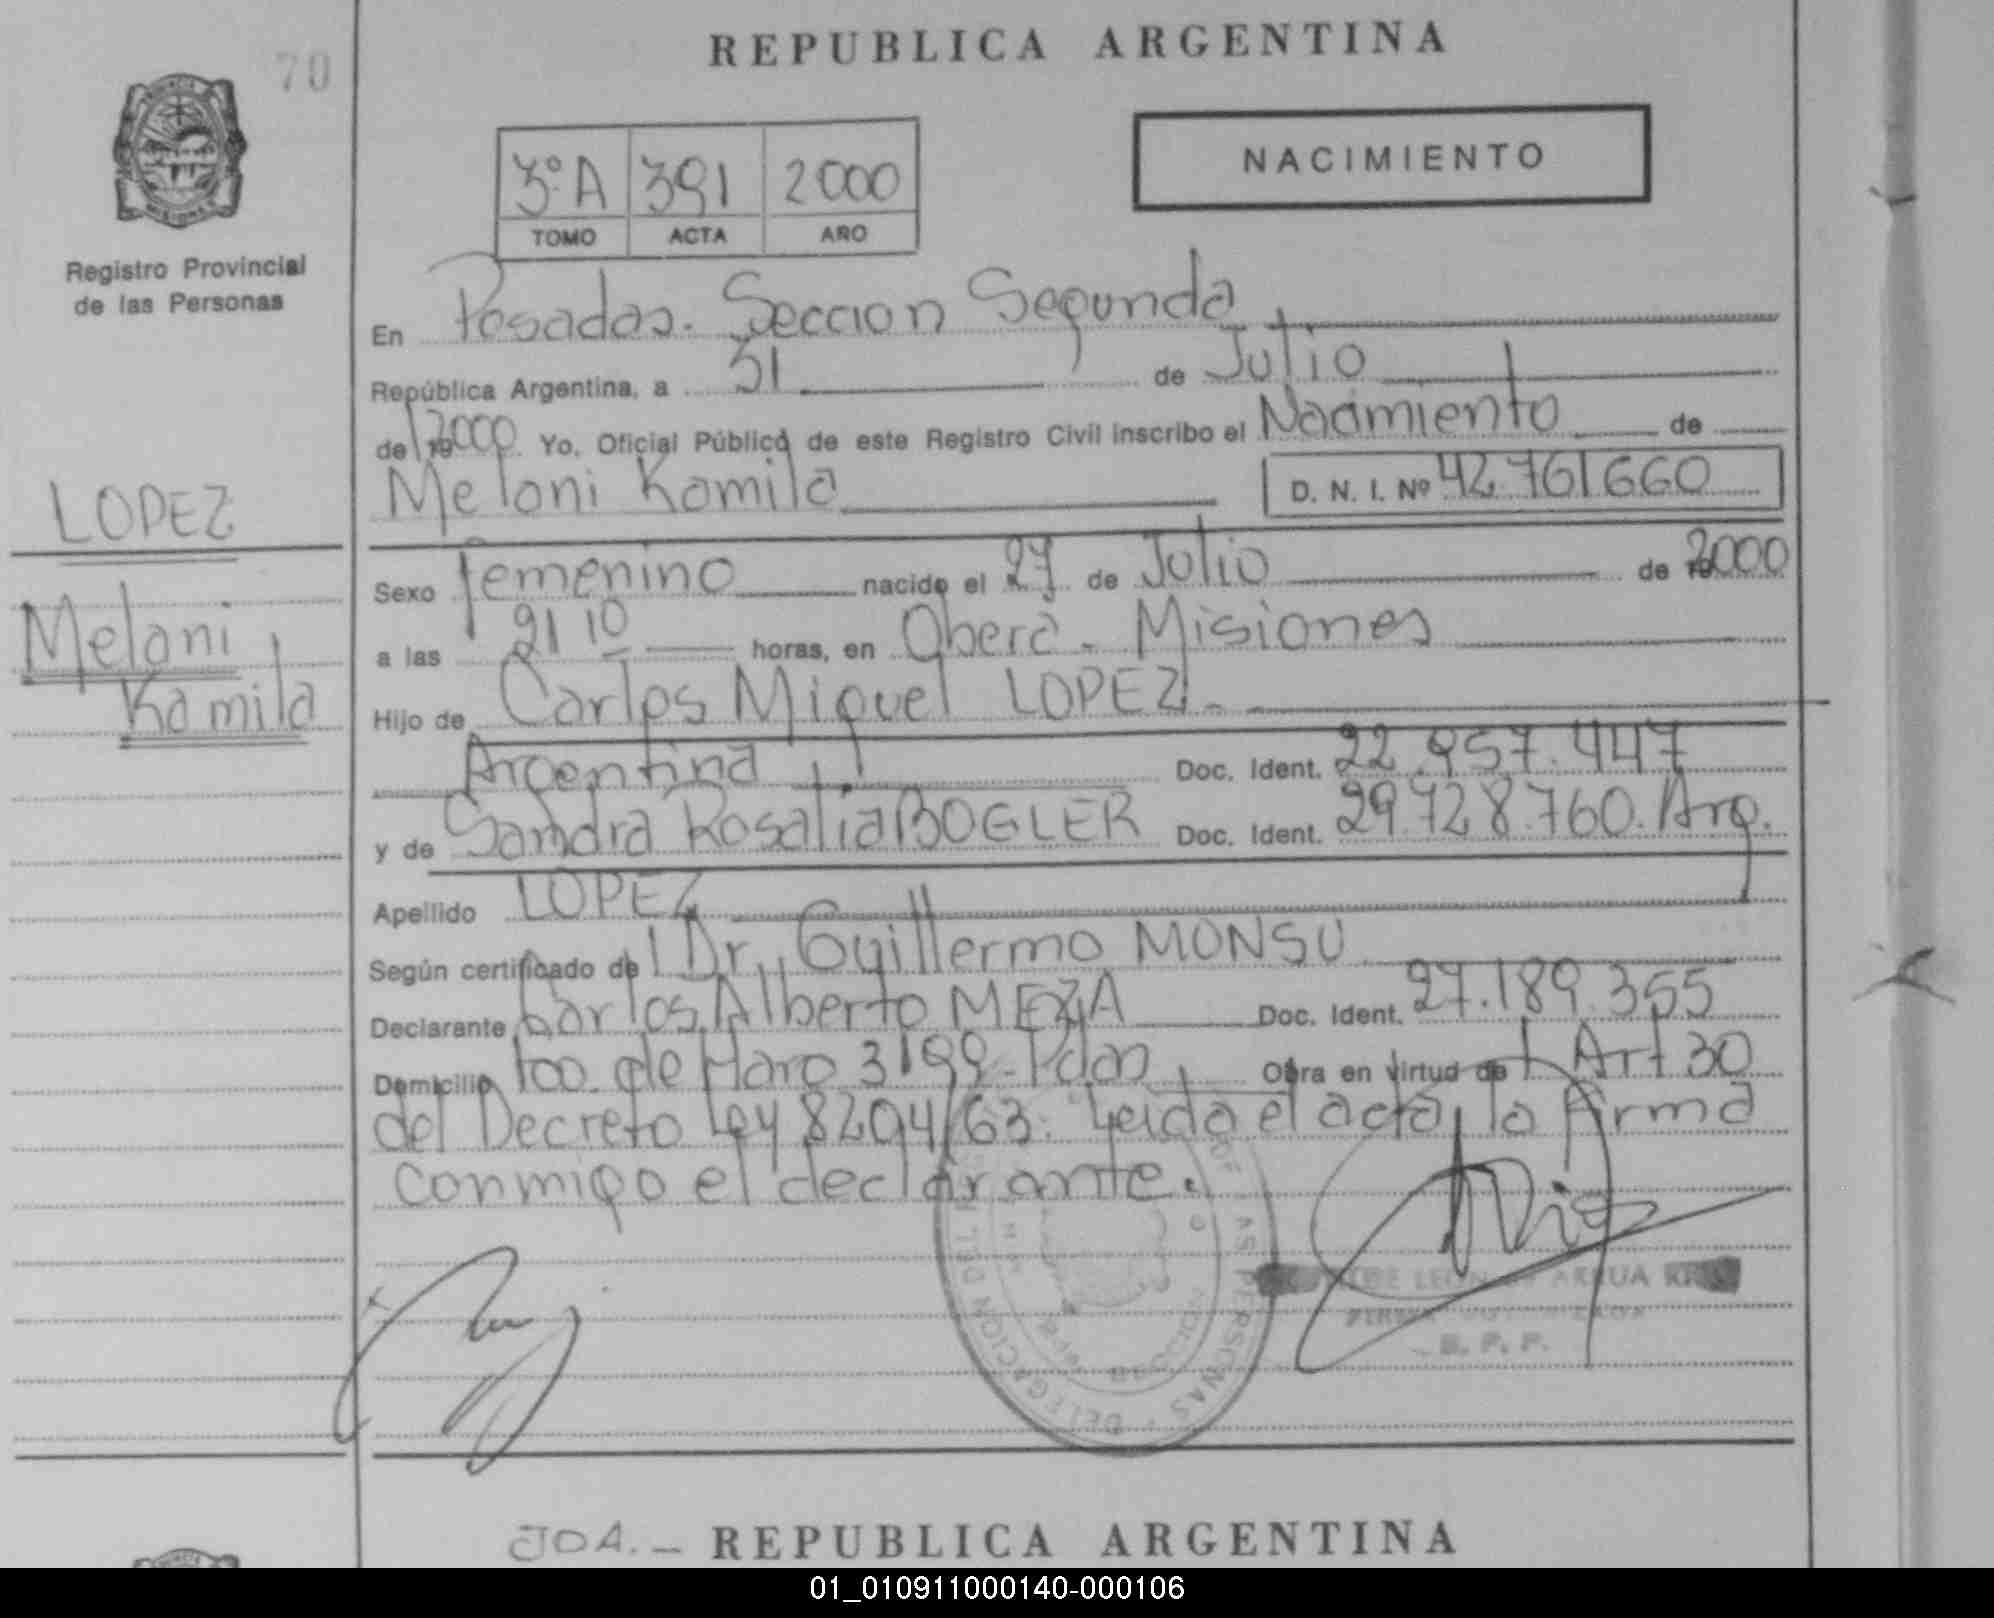 70
REPUBLICA ARGENTINA
NACIMIENTO
3ºA 391 2000
TOMO ACTA AÑO
Registro Provincial
de las Personas
En Posadas. Seccion Segunda
República Argentina, a 31 de Julio
de 2000 Yo, Oficial Público de este Registro Civil inscribo el Nacimiento de
Meloni Kamila D. N. I. Nº 42.761660
LOPEZ
Meloni
Kamila
Sexo femenino nacido el 27 de Julio de 2000
a las 21 10 horas, en Oberá - Misiones
Hijo de Carlos Miguel LOPEZ.-
Argentina Doc. Ident. 22.957.447
y de Sandra Rosalia BOGLER Doc. Ident. 29.728.760. Arg.
Apellido LOPEZ
Según certificado de Dr. Guillermo MONSU
Declarante Carlos Alberto MEZA Doc. Ident. 27.189.355
Domicilio fco. de Haro 3199 - Pdas Obra en virtud de Art 30
del Decreto Ley 8204/63. Leida el acta, la firma
conmigo el declarante.
DELEGACION DEL PERSONAS
E. P. P.
JOA.- REPUBLICA ARGENTINA
01_010911000140-000106